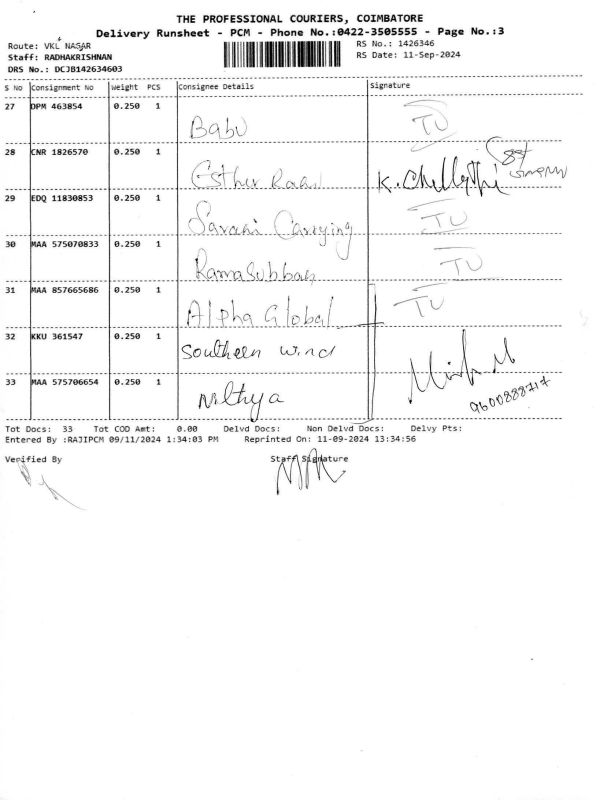 THE PROFESSIONAL COURIERS, COIMBATORE
Delivery Runsheet - PCM - Phone No.:0422-3505555 - Page No.:3
Route: VKL NAGAR
RS No.: 1426346
Staff: RADHAKRISHNAN
RS Date: 11-Sep-2024
DRS No.: DCJB142634603
S No Consignment No Weight PCS Consignee Details Signature
27 DPM 463854 0.250 1 Babu TU
28 CNR 1826570 0.250 1 Esther Rani K. Chellathi
29 EDQ 11830853 0.250 1 Sarani Carrying TU
30 MAA 575070833 0.250 1 Ramasubban TU
31 MAA 857665686 0.250 1 Alpha Global TU
32 KKU 361547 0.250 1 Southern Wind
33 MAA 575706654 0.250 1 Nithya
9600888717
Tot Docs: 33 Tot COD Amt: 0.00 Delvd Docs: Non Delvd Docs: Delvy Pts:
Entered By :RAJIPCM 09/11/2024 1:34:03 PM Reprinted On: 11-09-2024 13:34:56
Verified By Staff Signature